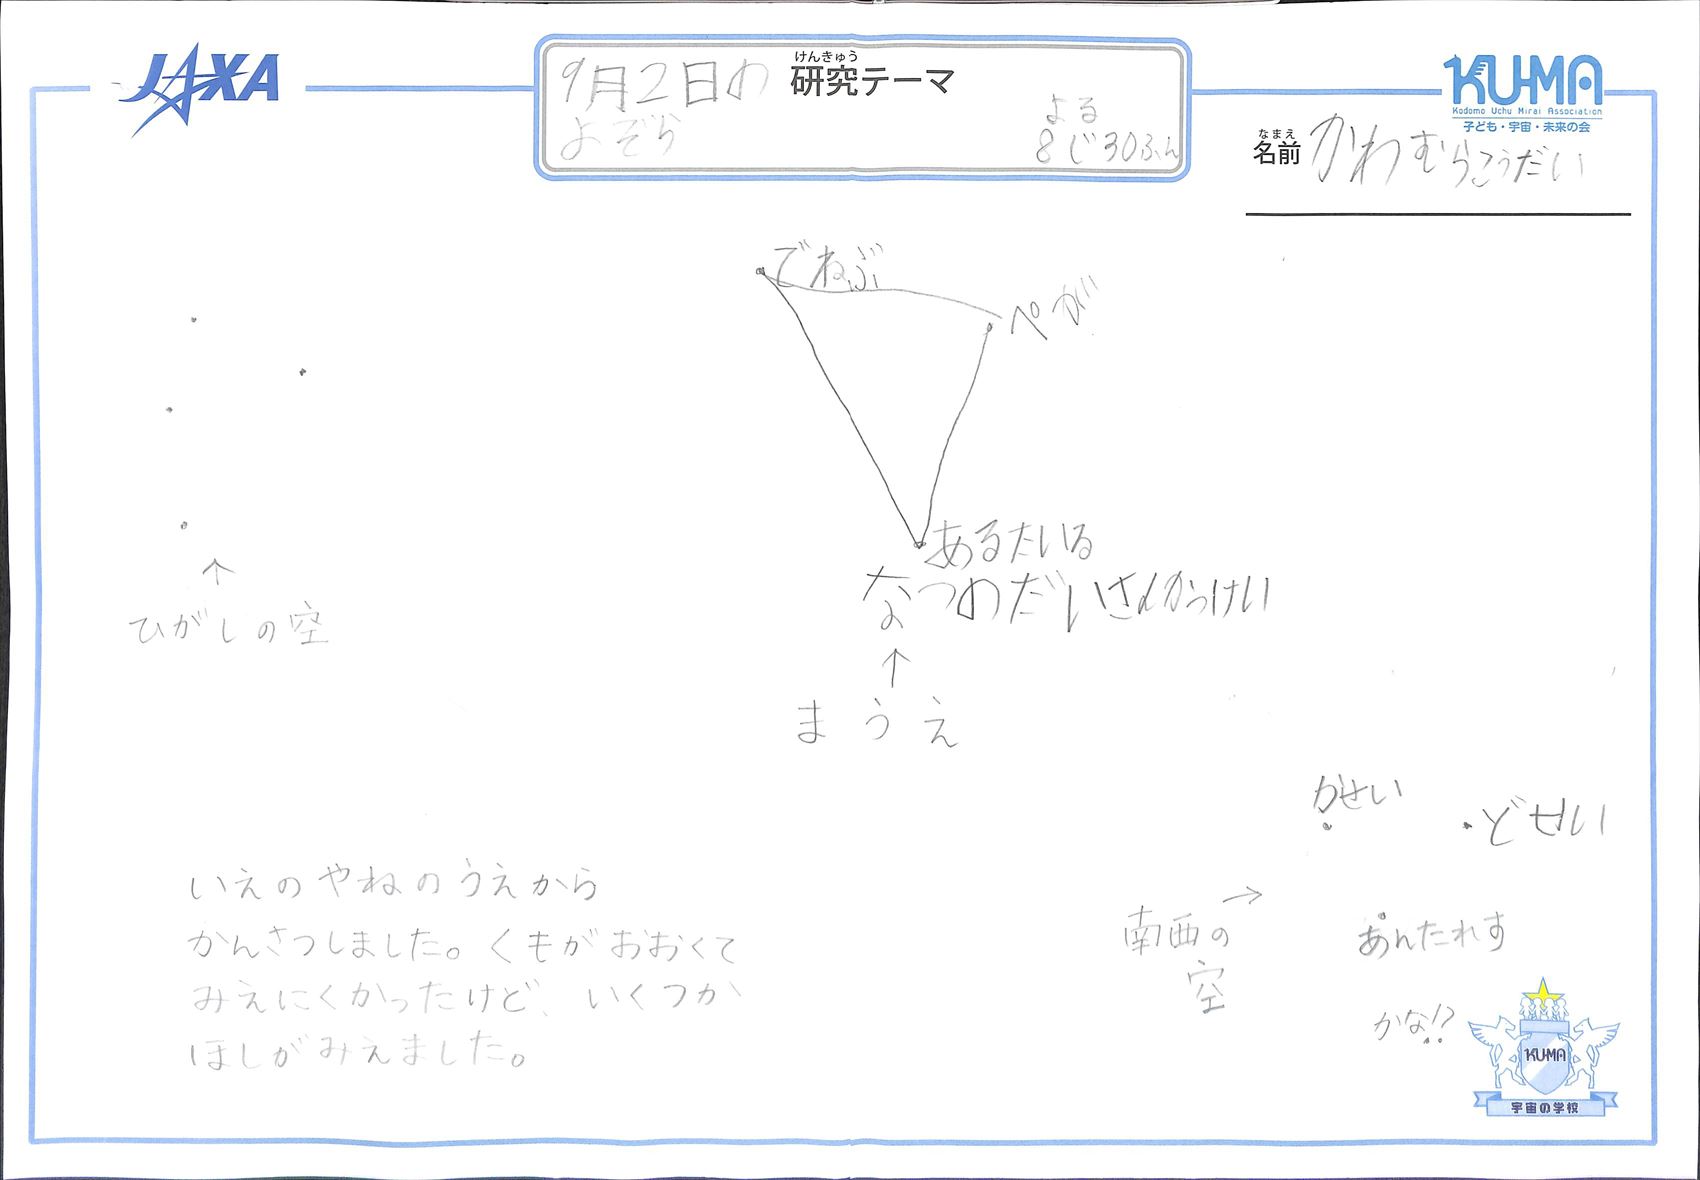 JAXA
けんきゅう
研究テーマ
9月2日の
よぞら
よる
8じ30ふん
KU-MA
Kodomo Uchu Mirai Association
子ども・宇宙・未来の会
なまえ
名前
かわむらこうだい
でねぶ
ぺが
あるたいる
なつのだいさんかっけい
↑
まうえ
↑
ひがしの空
かせい
どせい
南西の
空
→
あんたれす
かな!?
いえのやねのうえから
かんさつしました。くもがおおくて
みえにくかったけど、いくつか
ほしがみえました。
KU-MA
宇宙の学校